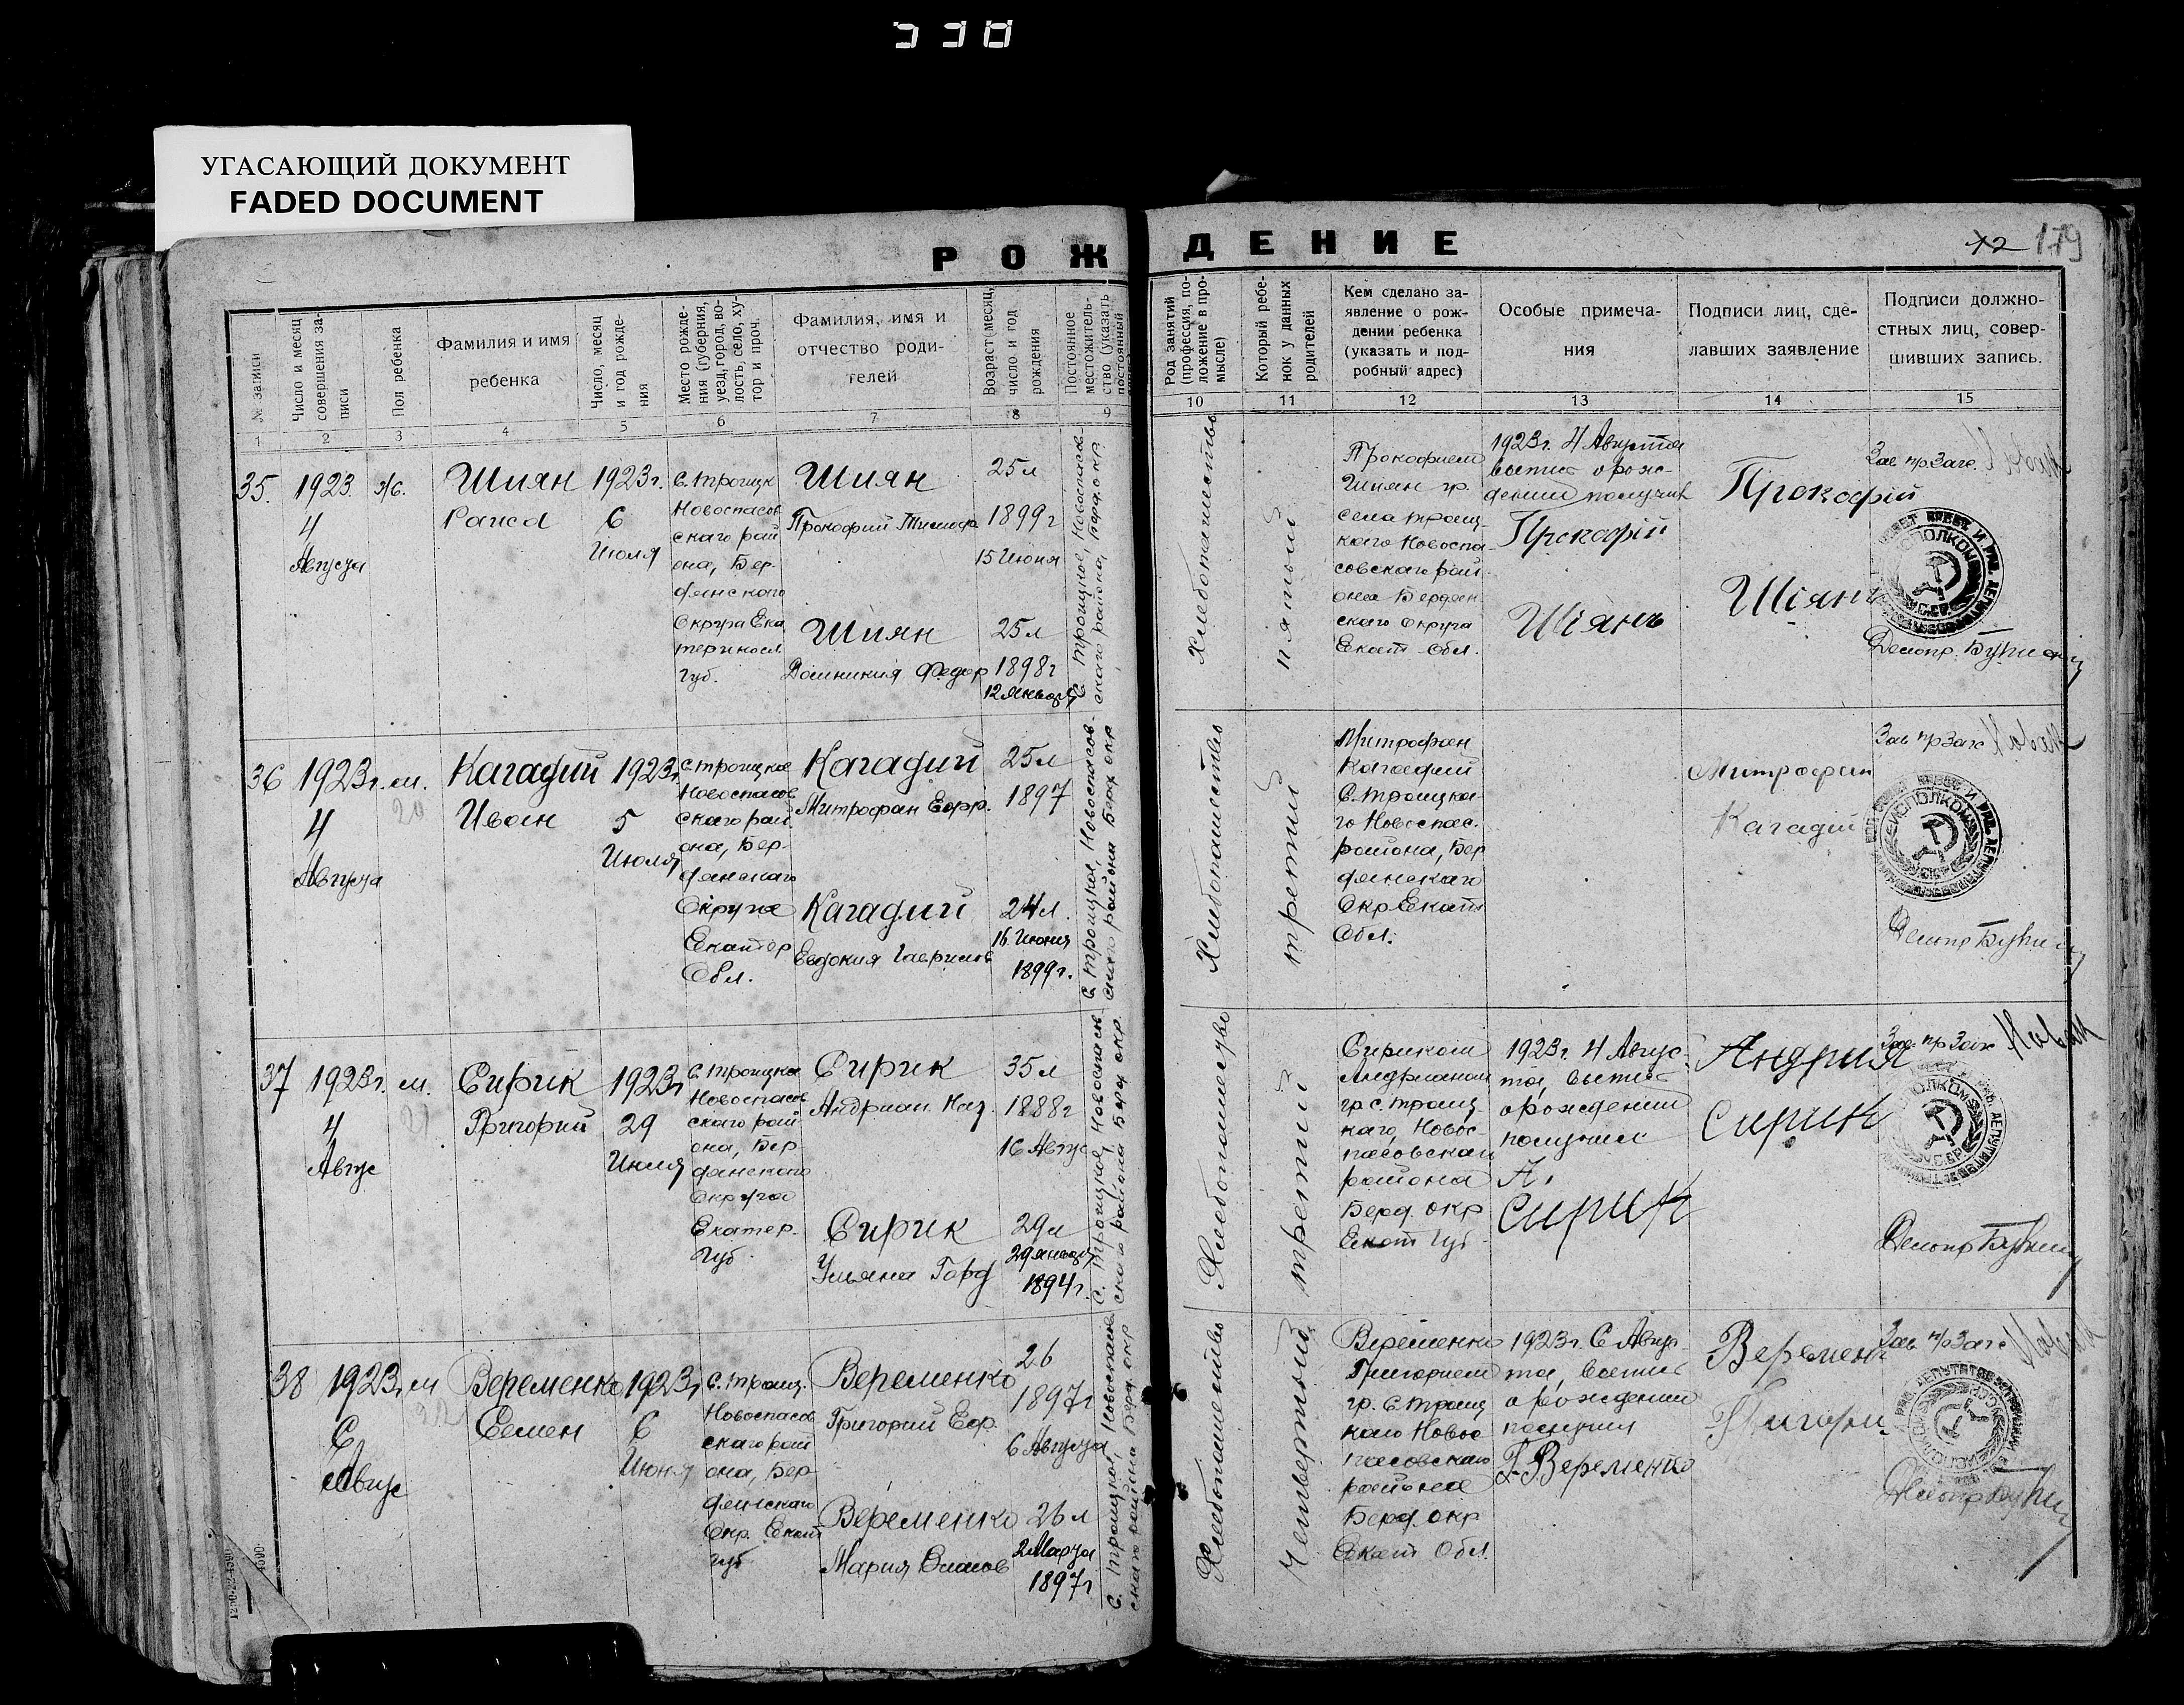 338
УГАСАЮЩИЙ ДОКУМЕНТ
FADED DOCUMENT
РОЖДЕНИЕ
12 179
№ записи
Число и месяц совершения записи
Пол ребенка
Фамилия и имя ребенка
Число, месяц и год рождения
Место рождения (губерния, уезд, город, волость, село, хутор и проч.
Фамилия, имя и отчество родителей
Возраст месяц, число и год рождения
Постоянное местожительство (указать постоянный
Род занятий (профессия, положение в промысле)
Который ребенок у данных родителей
Кем сделано заявление о рождении ребенка (указать и подробный адрес)
Особые примечания
Подписи лиц, сделавших заявление
Подписи должностных лиц, совершивших запись.
1 2 3 4 5 6 7 8 9 10 11 12 13 14 15
35.
1923.
4
Августа
ж.
Шиян
Раиса
1923г.
6
Июля
с. Троицк
Новоспасов
ского рай
она, Бер-
дянского
Округа Ека
териносл.
Губ.
Шиян
Прокофий Тимоф
25л
1899г
15 Июня
Шиян
Домникия Федор
25л
1898г
12 Января
С. Троицкое, Новоспасов-
ского района, Берд. окр.
Хлебопашество
пятый
Прокофием
Шиян гр.
села Троиц-
кого Новоспа-
совского рай
она Бердян-
ского Округа
Екат Обл.
1923г. 4 Августа
выпис о рож-
дении получил
Прокофій
Шіянъ
Прокофій
Шіянъ
Зав пр.Загс.
Делопр.
36
1923г.
4
Августа
м.
20
Кагадий
Иван
1923г
5
Июля
с Троицкое
Новоспасов
ского рай
она, Бер-
дянского
Округа
Екатер
Обл.
Кагадий
Митрофан Егор.
25л
1897
Кагадий
Евдокия Гаврилов
24л.
16 Июня
1899г.
С. Троицкое, Новоспасов.
ского района Берд окр
Хлебопашество
третий
Митрофан
Кагадий
С. Троицко-
го Новоспас.
района, Бер
дянского
Окр Екат
Обл.
Митрофан
Кагадій
Зав пр Загс Новак
Делопр
37
1923г.
4
Авгус
м.
21
Сирик
Григорий
1923г
29
Июля
с. Троицкое
Новоспасов
ского рай-
она, Бер
дянского
Округа
Екатер.
Губ.
Сирик
Андриан Наз.
35л
1888г
16 Авгус
Сирик
Ульяна Горд
29л
29 Января
1894г.
С. Троицкое, Новоспасов
ского района Берд окр.
Хлебопашество
третий
Сириком
Андрианом
гр. с. Троиц-
кого, Новос-
пасовская
района
Берд. окр
Екат Губ
1923г. 4 Авгус-
та, выпис
о рождении
получил
А.
Сирик
Андрия
Сирик
Зав. пр Загс Новак
Делопр
38
1923г
6
Авгус
м
22
Веременко
Семен
1923г
6
Июня
с. Троиц.
Новоспасов
ского рай
она, Бер-
дянского
Окр. Екат
Губ
Веременко
Григорий Егор.
26
1897г
6 Августа
Веременко
Мария
26л
2 Марта
1897г
С. Троицкое, Новоспасов
ского района Берд. окр
Хлебопашество
Четвертый
Веременко
Григорием
гр. с. Троиц
кого Новос
пасовского
района
Берд. окр
Екат Обл.
1923г. 6 Авгус-
та, выпис
о рождении
получил
Г Веременко
Веремен
Григори
Зав пр Загс
Делопр